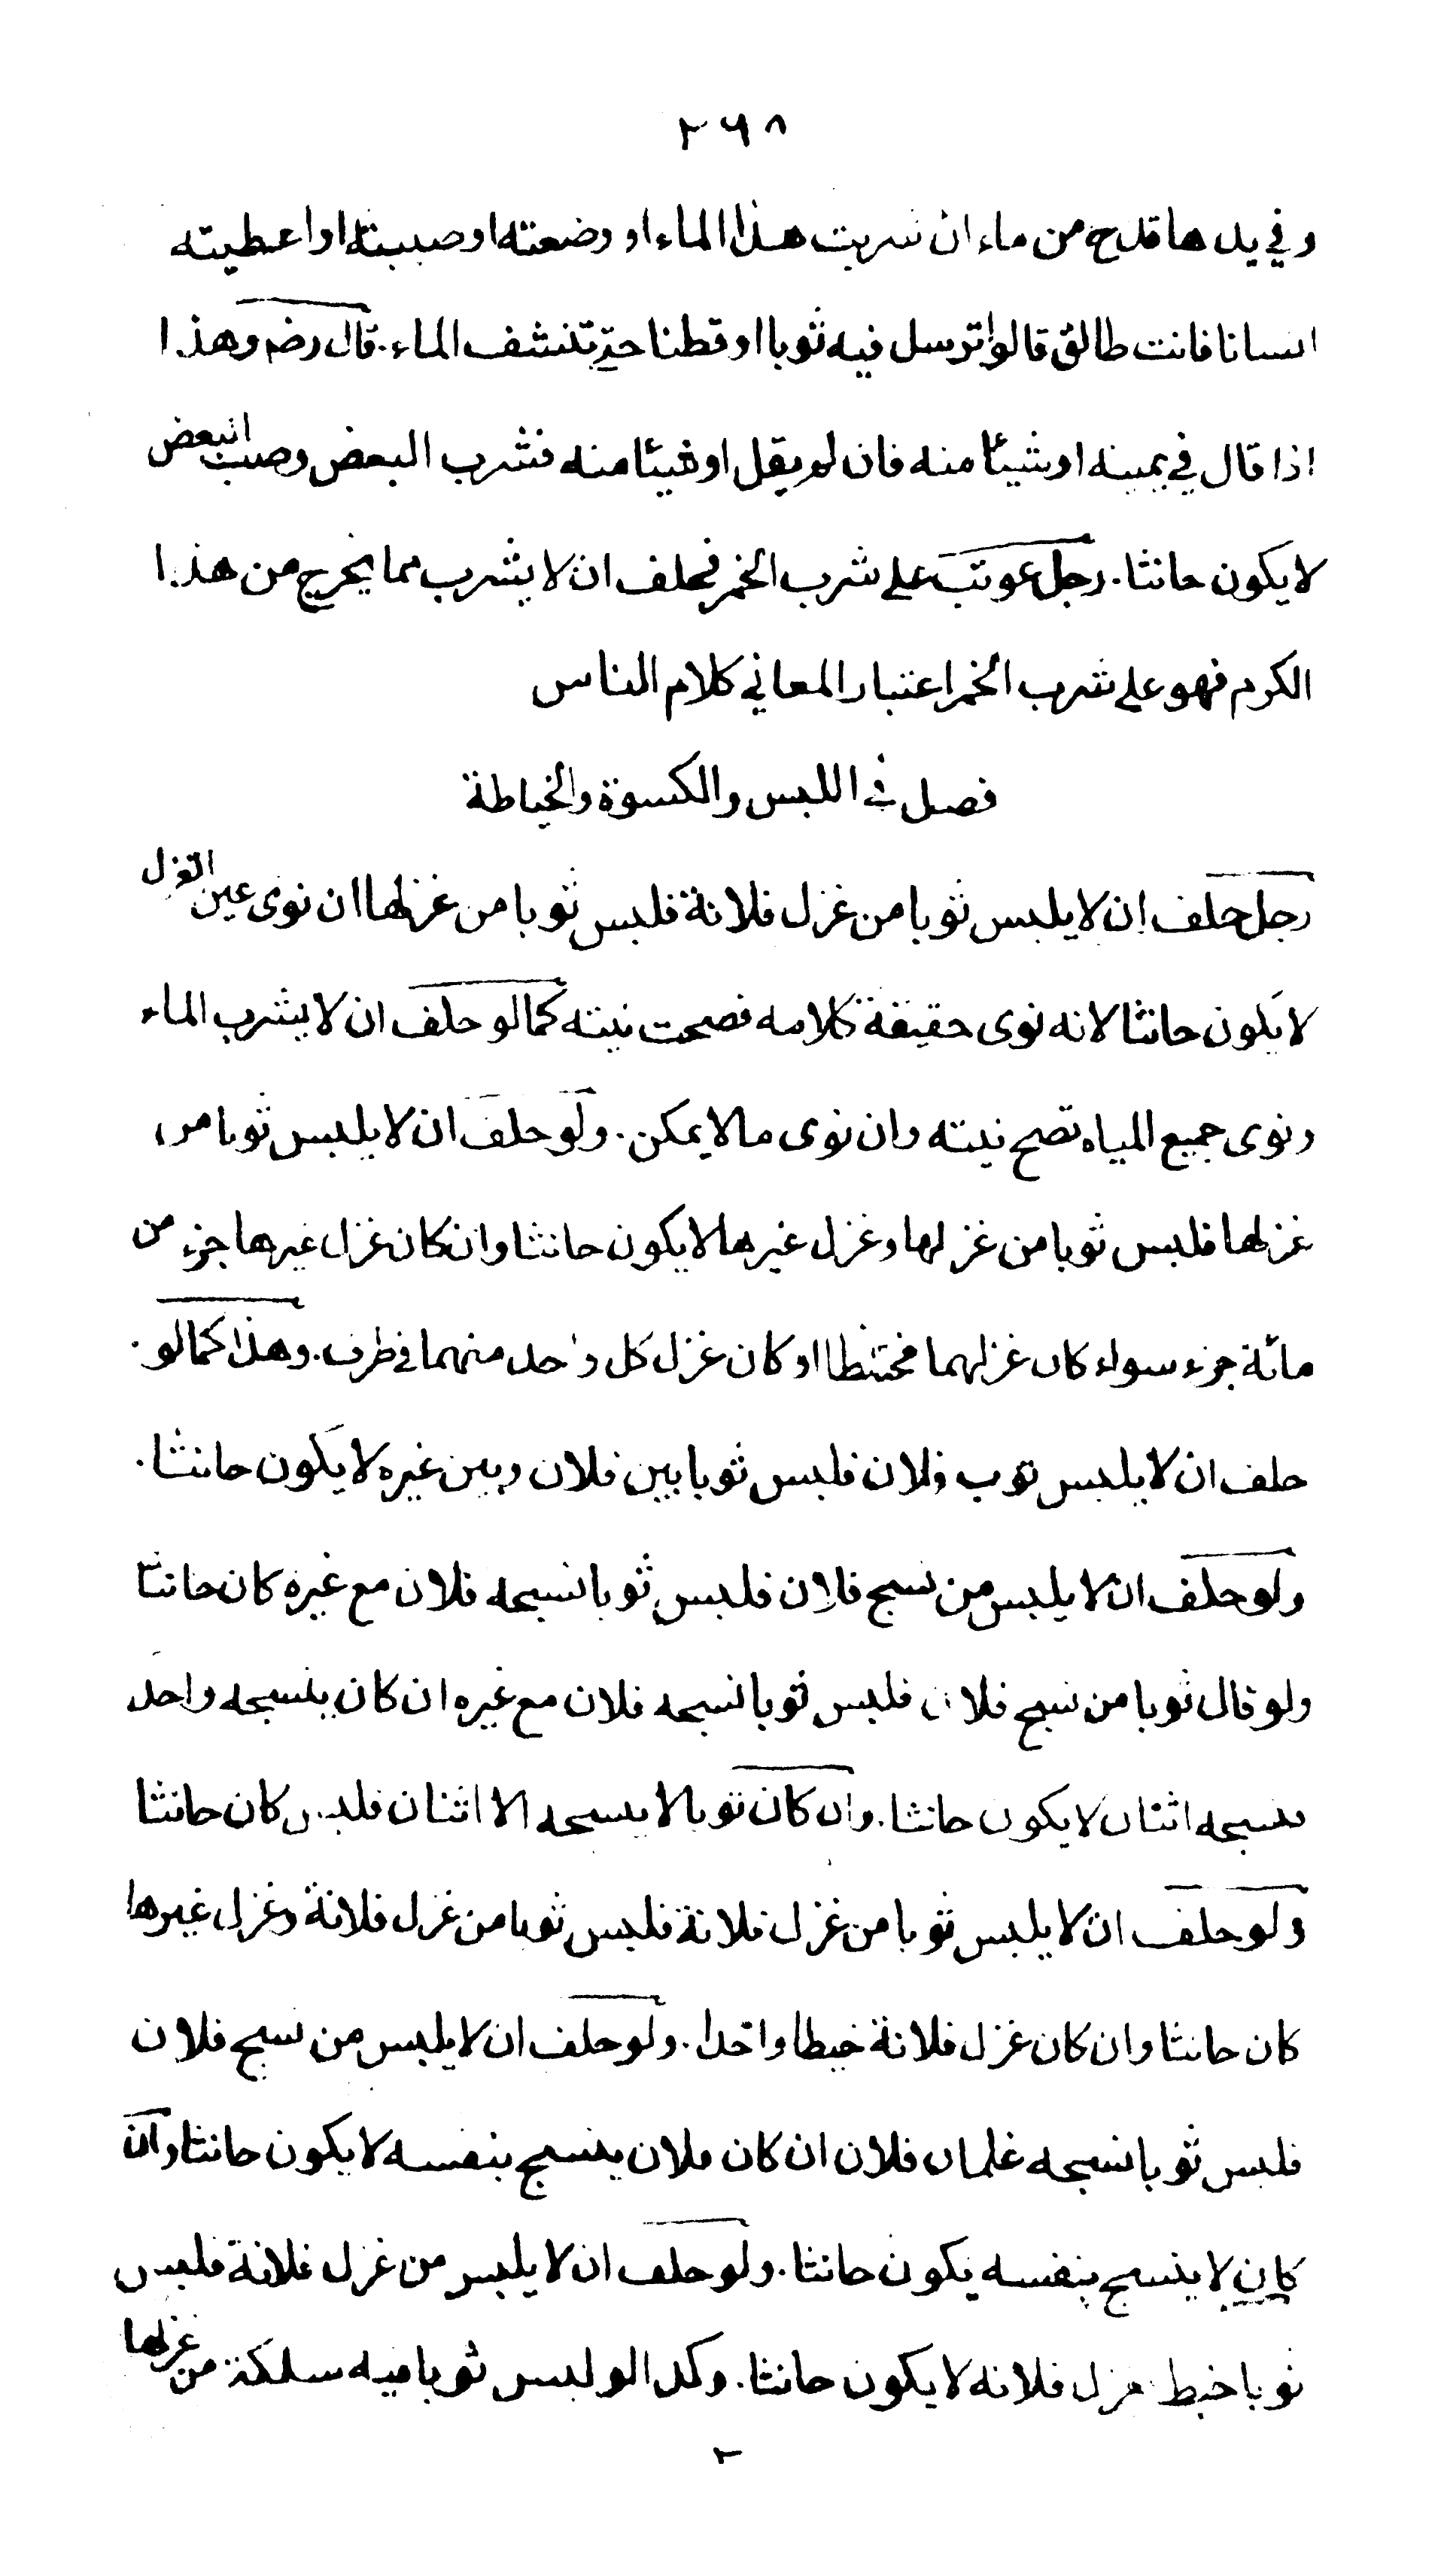 ۲۶۸
وفي يدها قدح من ماء ان شربت هذا الماء او وضعته او صببته او اعطيته
انسانا فانت طالق قالوا ترسل فيه ثوبا او قطنا حتى تنشف الماء. قال رضہ وهذا
اذا قال في يمينه او شيئا منه فان لم يقل او شيئا منه فشرب البعض وصبت البعض
لا يكون حانثا. رجل عوتب على شرب الخمر فحلف ان لا يشرب مما يخرج من هذا
الكرم فهو على شرب الخمر اعتبارا لمعاني كلام الناس
فصل في اللبس والكسوة والخياطة
رجل حلف ان لا يلبس ثوبا من غزل فلانة فلبس ثوبا من غزلها ان نوى عين الغزل
لا يكون حانثا لانه نوى حقيقة كلامه فصحت نيته كما لو حلف ان لا يشرب الماء
ونوى جميع المياه تصح نيته وان نوى ما لا يمكن. ولو حلف ان لا يلبس ثوبا من
غزلها فلبس ثوبا من غزلها وغزل غيرها لا يكون حانثا وان كان غزل غيرها جزء من
مائة جزء سواء كان غزلهما مختلطا او كان غزل كل واحد منهما في طرف. وهذا كما لو
حلف ان لا يلبس ثوب فلان فلبس ثوبا بين فلان وبين غيره لا يكون حانثا.
ولو حلف ان لا يلبس من نسج فلان فلبس ثوبا نسجه فلان مع غيره كان حانثا
ولو قال ثوبا من نسج فلان فلبس ثوبا نسجه فلان مع غيره ان كان ينسجه واحد
نسجه اثنان لا يكون حانثا. وان كان ثوبا لا ينسجه الا اثنان فلبس كان حانثا
ولو حلف ان لا يلبس ثوبا من غزل فلانة فلبس ثوبا من غزل فلانة وغزل غيرها
كان حانثا وان كان غزل فلانة خيطا واحدا. ولو حلف ان لا يلبس من نسج فلان
فلبس ثوبا نسجه غلمان فلان ان كان فلان ينسج بنفسه لا يكون حانثا وان
كان لا ينسج بنفسه يكون حانثا. ولو حلف ان لا يلبس من غزل فلانة فلبس
ثوبا خيط غزل فلانة لا يكون حانثا. وكذا لو لبس ثوبا فيه سلكة من غزلها
۲